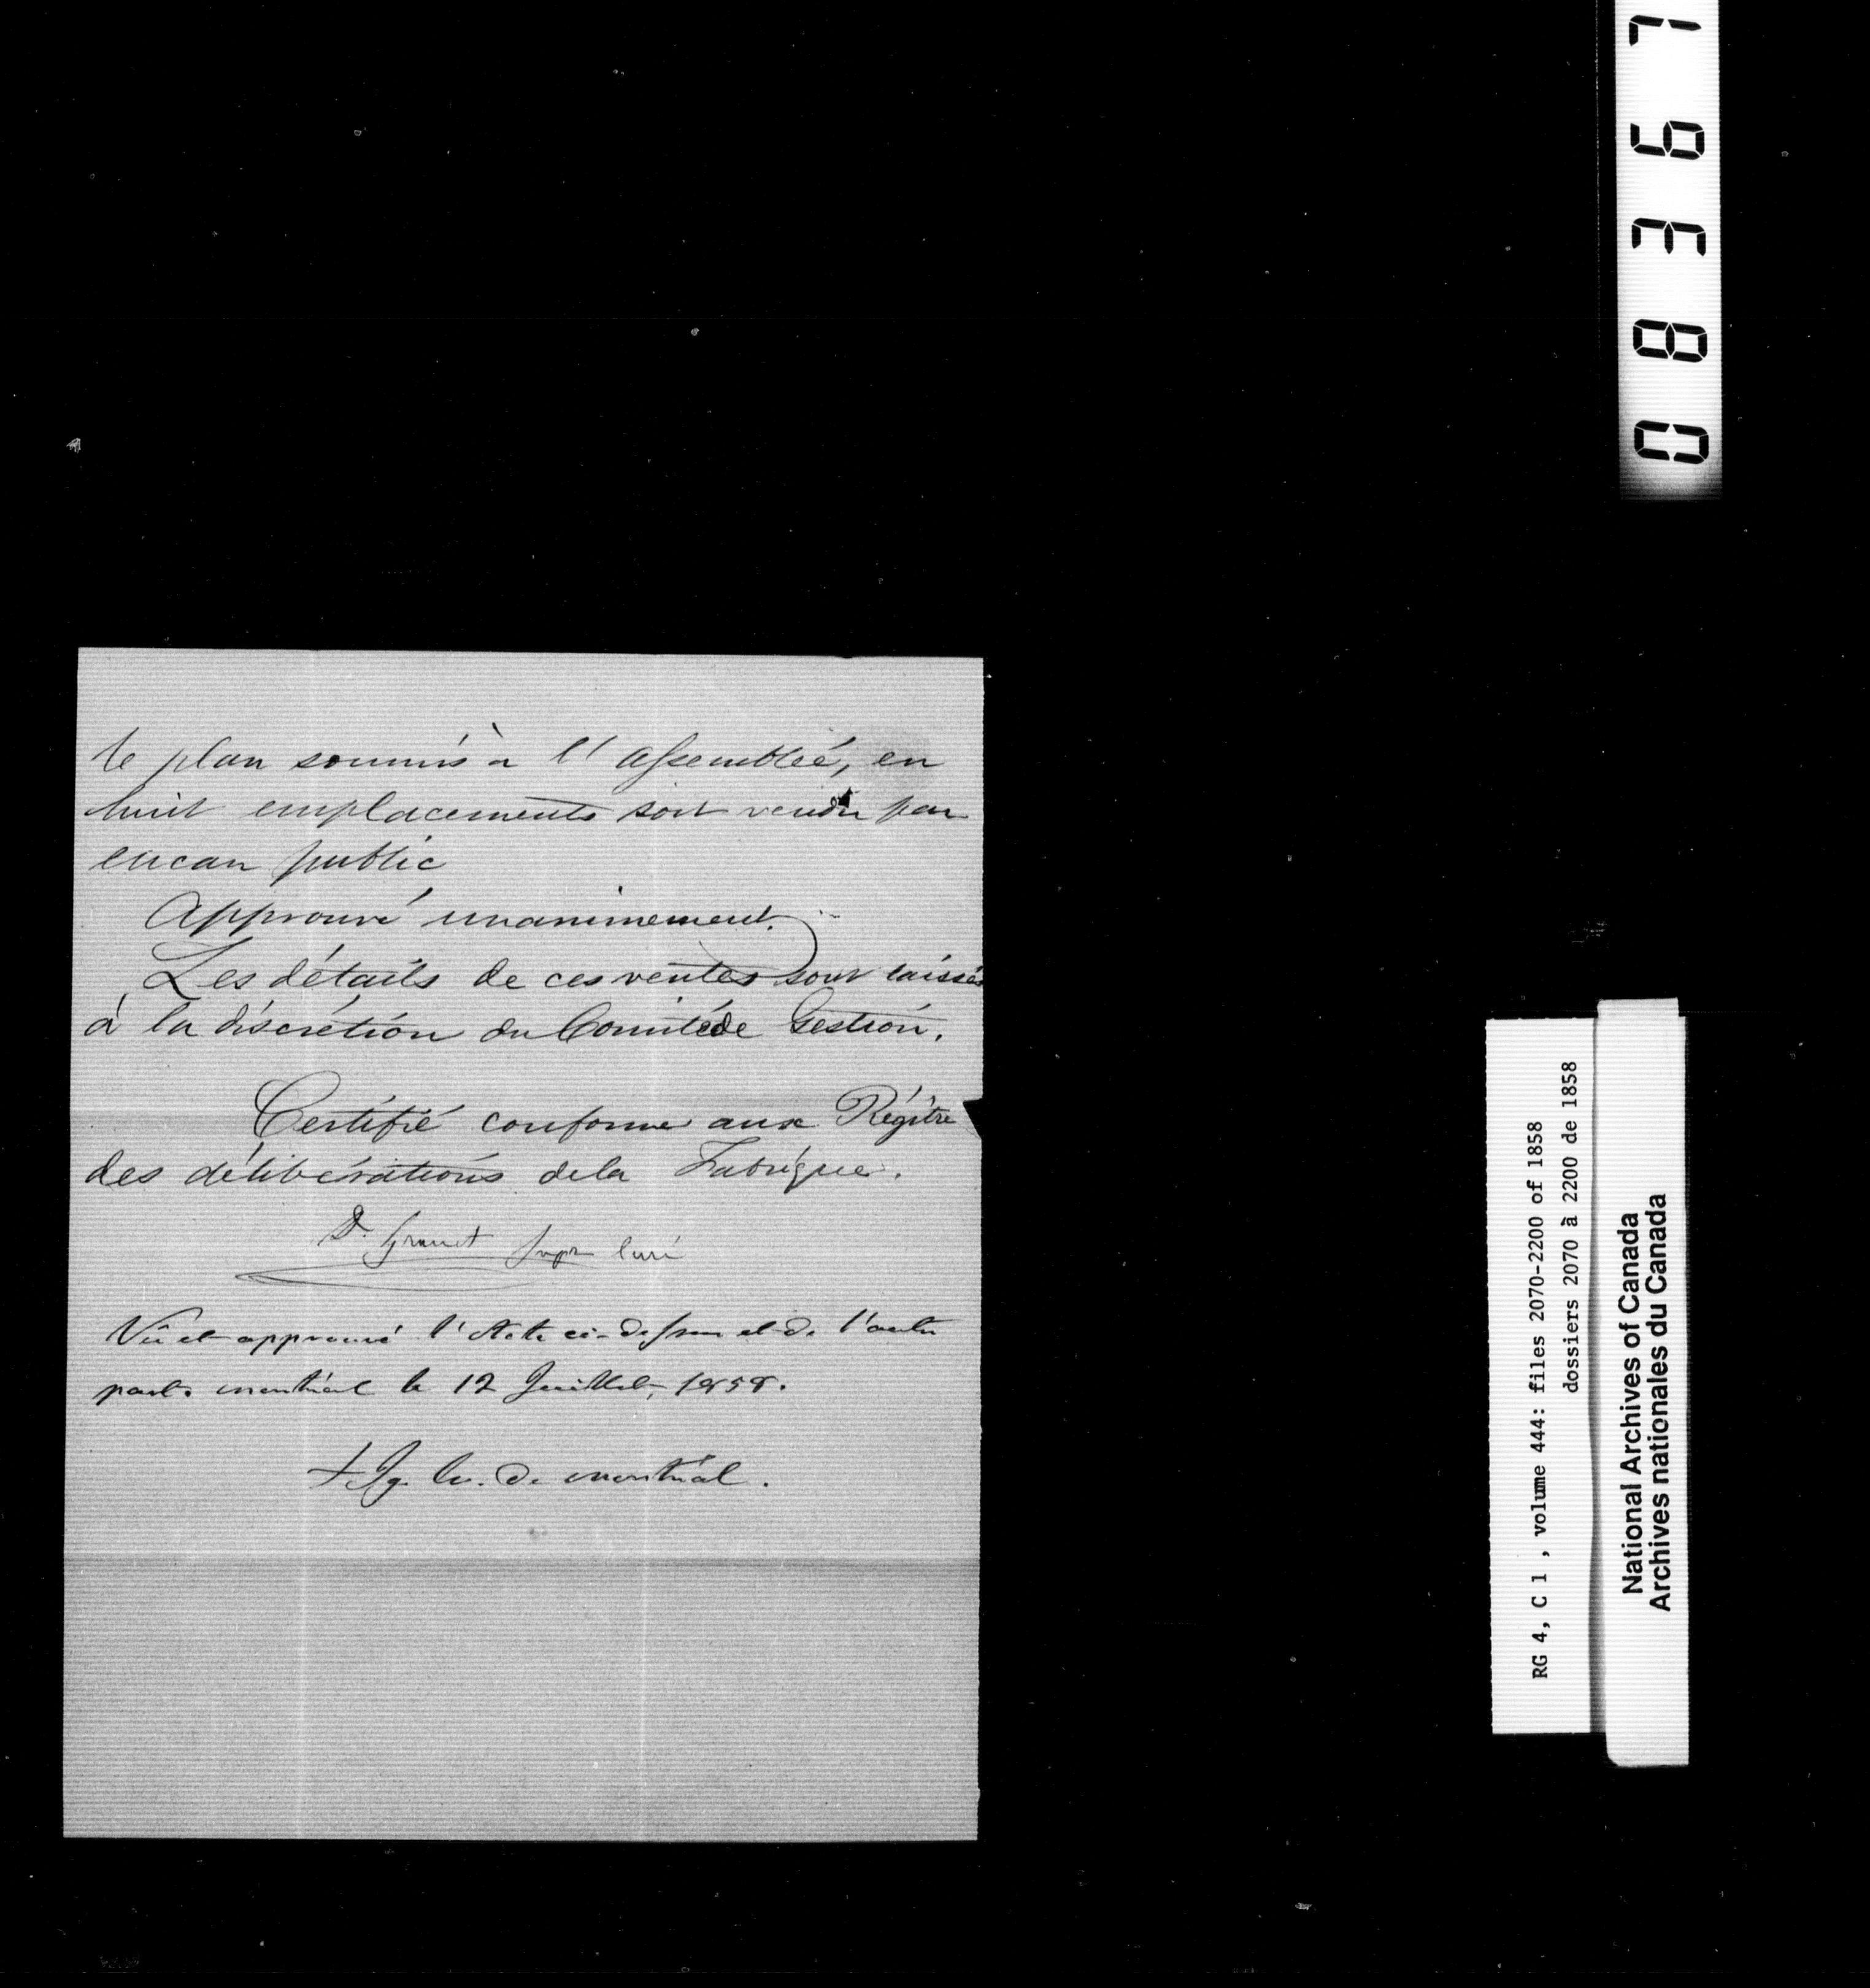 le plan soumis à l'assemblée, en
huit emplacements soit vendu par
encan public
Approuvé unanimement.
Les détails de ces ventes sont laissés
à la discrétion du Comité de Gestion.
Certifié conforme aux Régitre
des délibérations de la Fabrique.
D. Granet Supr Curé
Vû et approuvé l'Acte ci-dessus et de l'autre
part. Montréal le 12 Juillet, 1858.
+ Ig. Ev. de Montréal.
08367
RG 4, C 1 , volume 444: files 2070-2200 of 1858
dossiers 2070 à 2200 de 1858
National Archives of Canada
Archives nationales du Canada